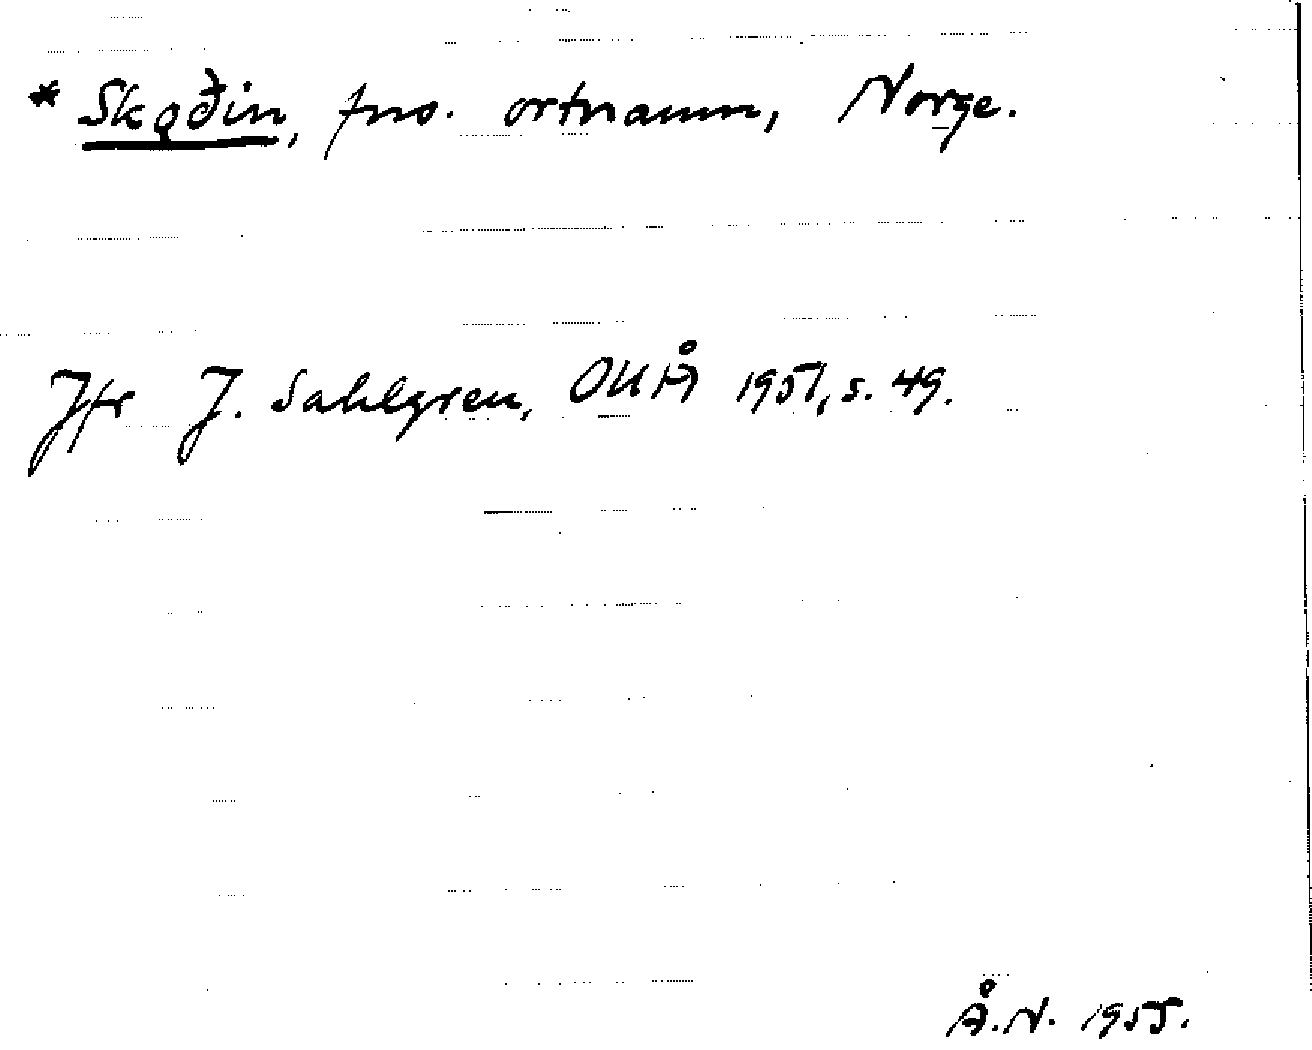 * Skǫðin, fno. ortnamn, Norge.
Jfr J. Sahlgren, OUÅ 1951, s. 49.
Å.N. 1955.